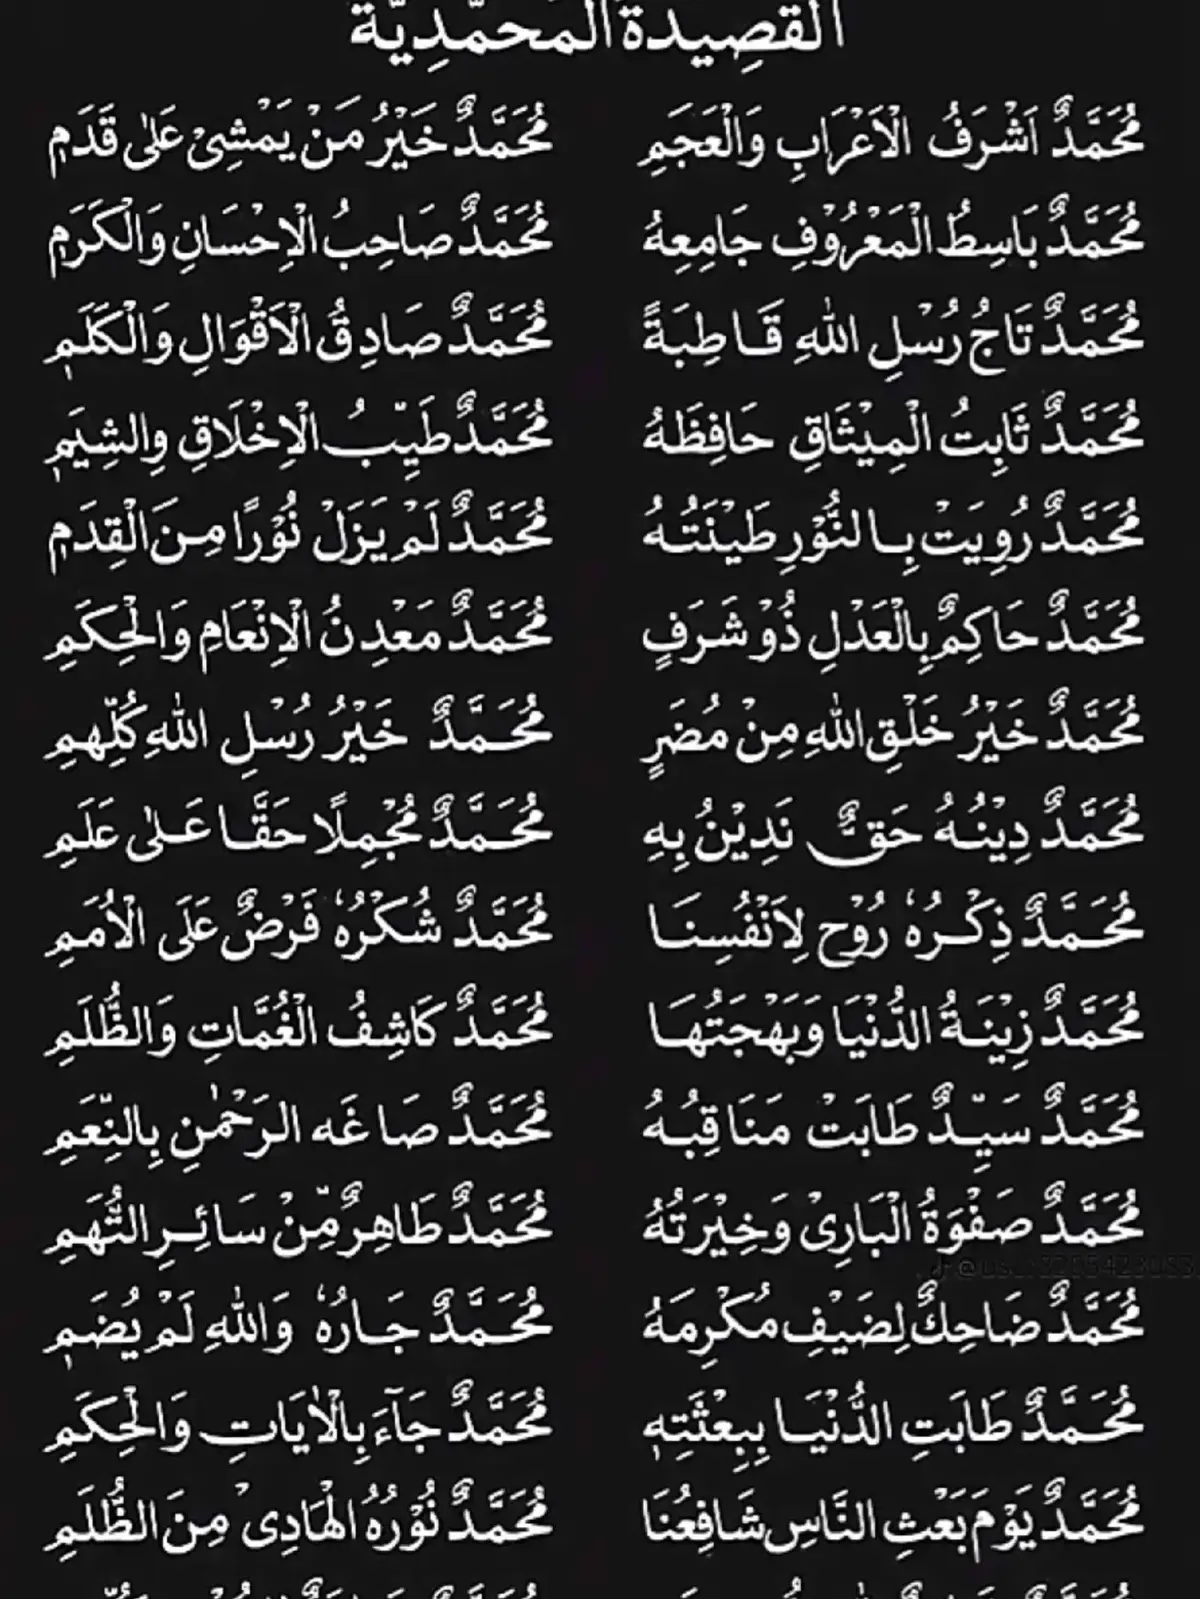 القَصِيدَةُ الْمُحَمَّدِيَّة
مُحَمَّدٌ اَشْرَفُ الْاَعْرَابِ وَالْعَجَمِ مُحَمَّدٌ خَيْرُ مَنْ يَمْشِىْ عَلٰى قَدَمِ
مُحَمَّدٌ بَاسِطُ الْمَعْرُوْفِ جَامِعِهُ مُحَمَّدٌ صَاحِبُ الْاِحْسَانِ وَالْكَرَمِ
مُحَمَّدٌ تَاجُ رُسْلِ اللهِ قَاطِبَةً مُحَمَّدٌ صَادِقُ الْاَقْوَالِ وَالْكَلَمِ
مُحَمَّدٌ ثَابِتُ الْمِيْثَاقِ حَافِظَهُ مُحَمَّدٌ طَيِّبُ الْاِخْلَاقِ وِالشِيَمِ
مُحَمَّدٌ رُوِيَتْ بِالنُّوْرِ طَيْنَتُهُ مُحَمَّدٌ لَمْ يَزَلْ نُوْرًا مِنَ الْقِدَمِ
مُحَمَّدٌ حَاكِمٌ بِالْعَدْلِ ذُوْ شَرَفٍ مُحَمَّدٌ مَعْدِنُ الْاِنْعَامِ وَالْحِكَمِ
مُحَمَّدٌ خَيْرُ خَلْقِ اللهِ مِنْ مُضَرٍ مُحَمَّدٌ خَيْرُ رُسْلِ اللهِ كُلِّهِمِ
مُحَمَّدٌ دِيْنُهُ حَقٌّ نَدِيْنُ بِهِ مُحَمَّدٌ مُجْمِلًا حَقَّا عَلٰى عَلَمِ
مُحَمَّدٌ ذِكْرُهٗ رُوْح لِاَنْفُسِنَا مُحَمَّدٌ شُكْرُهٗ فَرْضٌ عَلَى الْاُمَمِ
مُحَمَّدٌ زِيْنَةُ الدُّنْيَا وَبَهْجَتُهَا مُحَمَّدٌ كَاشِفُ الْغُمَّاتِ وَالظُّلَمِ
مُحَمَّدٌ سَيِّدٌ طَابَتْ مَنَاقِبُهُ مُحَمَّدٌ صَاغَه الرَحْمٰنِ بِالنِّعَمِ
مُحَمَّدٌ صَفْوَةُ الْبَارِىْ وَخِيْرَتَهُ مُحَمَّدٌ طَاهِرٌ مِّنْ سَائِرِ التُّهَمِ
مُحَمَّدٌ ضَاحِكٌ لِضَيْفِ مُكْرِمَهُ مُحَمَّدٌ جَارُهٗ وَاللهِ لَمْ يُضَمِ
مُحَمَّدٌ طَابَتِ الدُّنْيَا بِبِعْثَتِهٖ مُحَمَّدٌ جَآءَ بِالْاٰيَاتِ وَالْحِكَمِ
مُحَمَّدٌ يَوْمَ بَعْثِ النَّاسِ شَافِعُنَا مُحَمَّدٌ نُوْرُهُ الْهَادِى مِنَ الظُّلَمِ